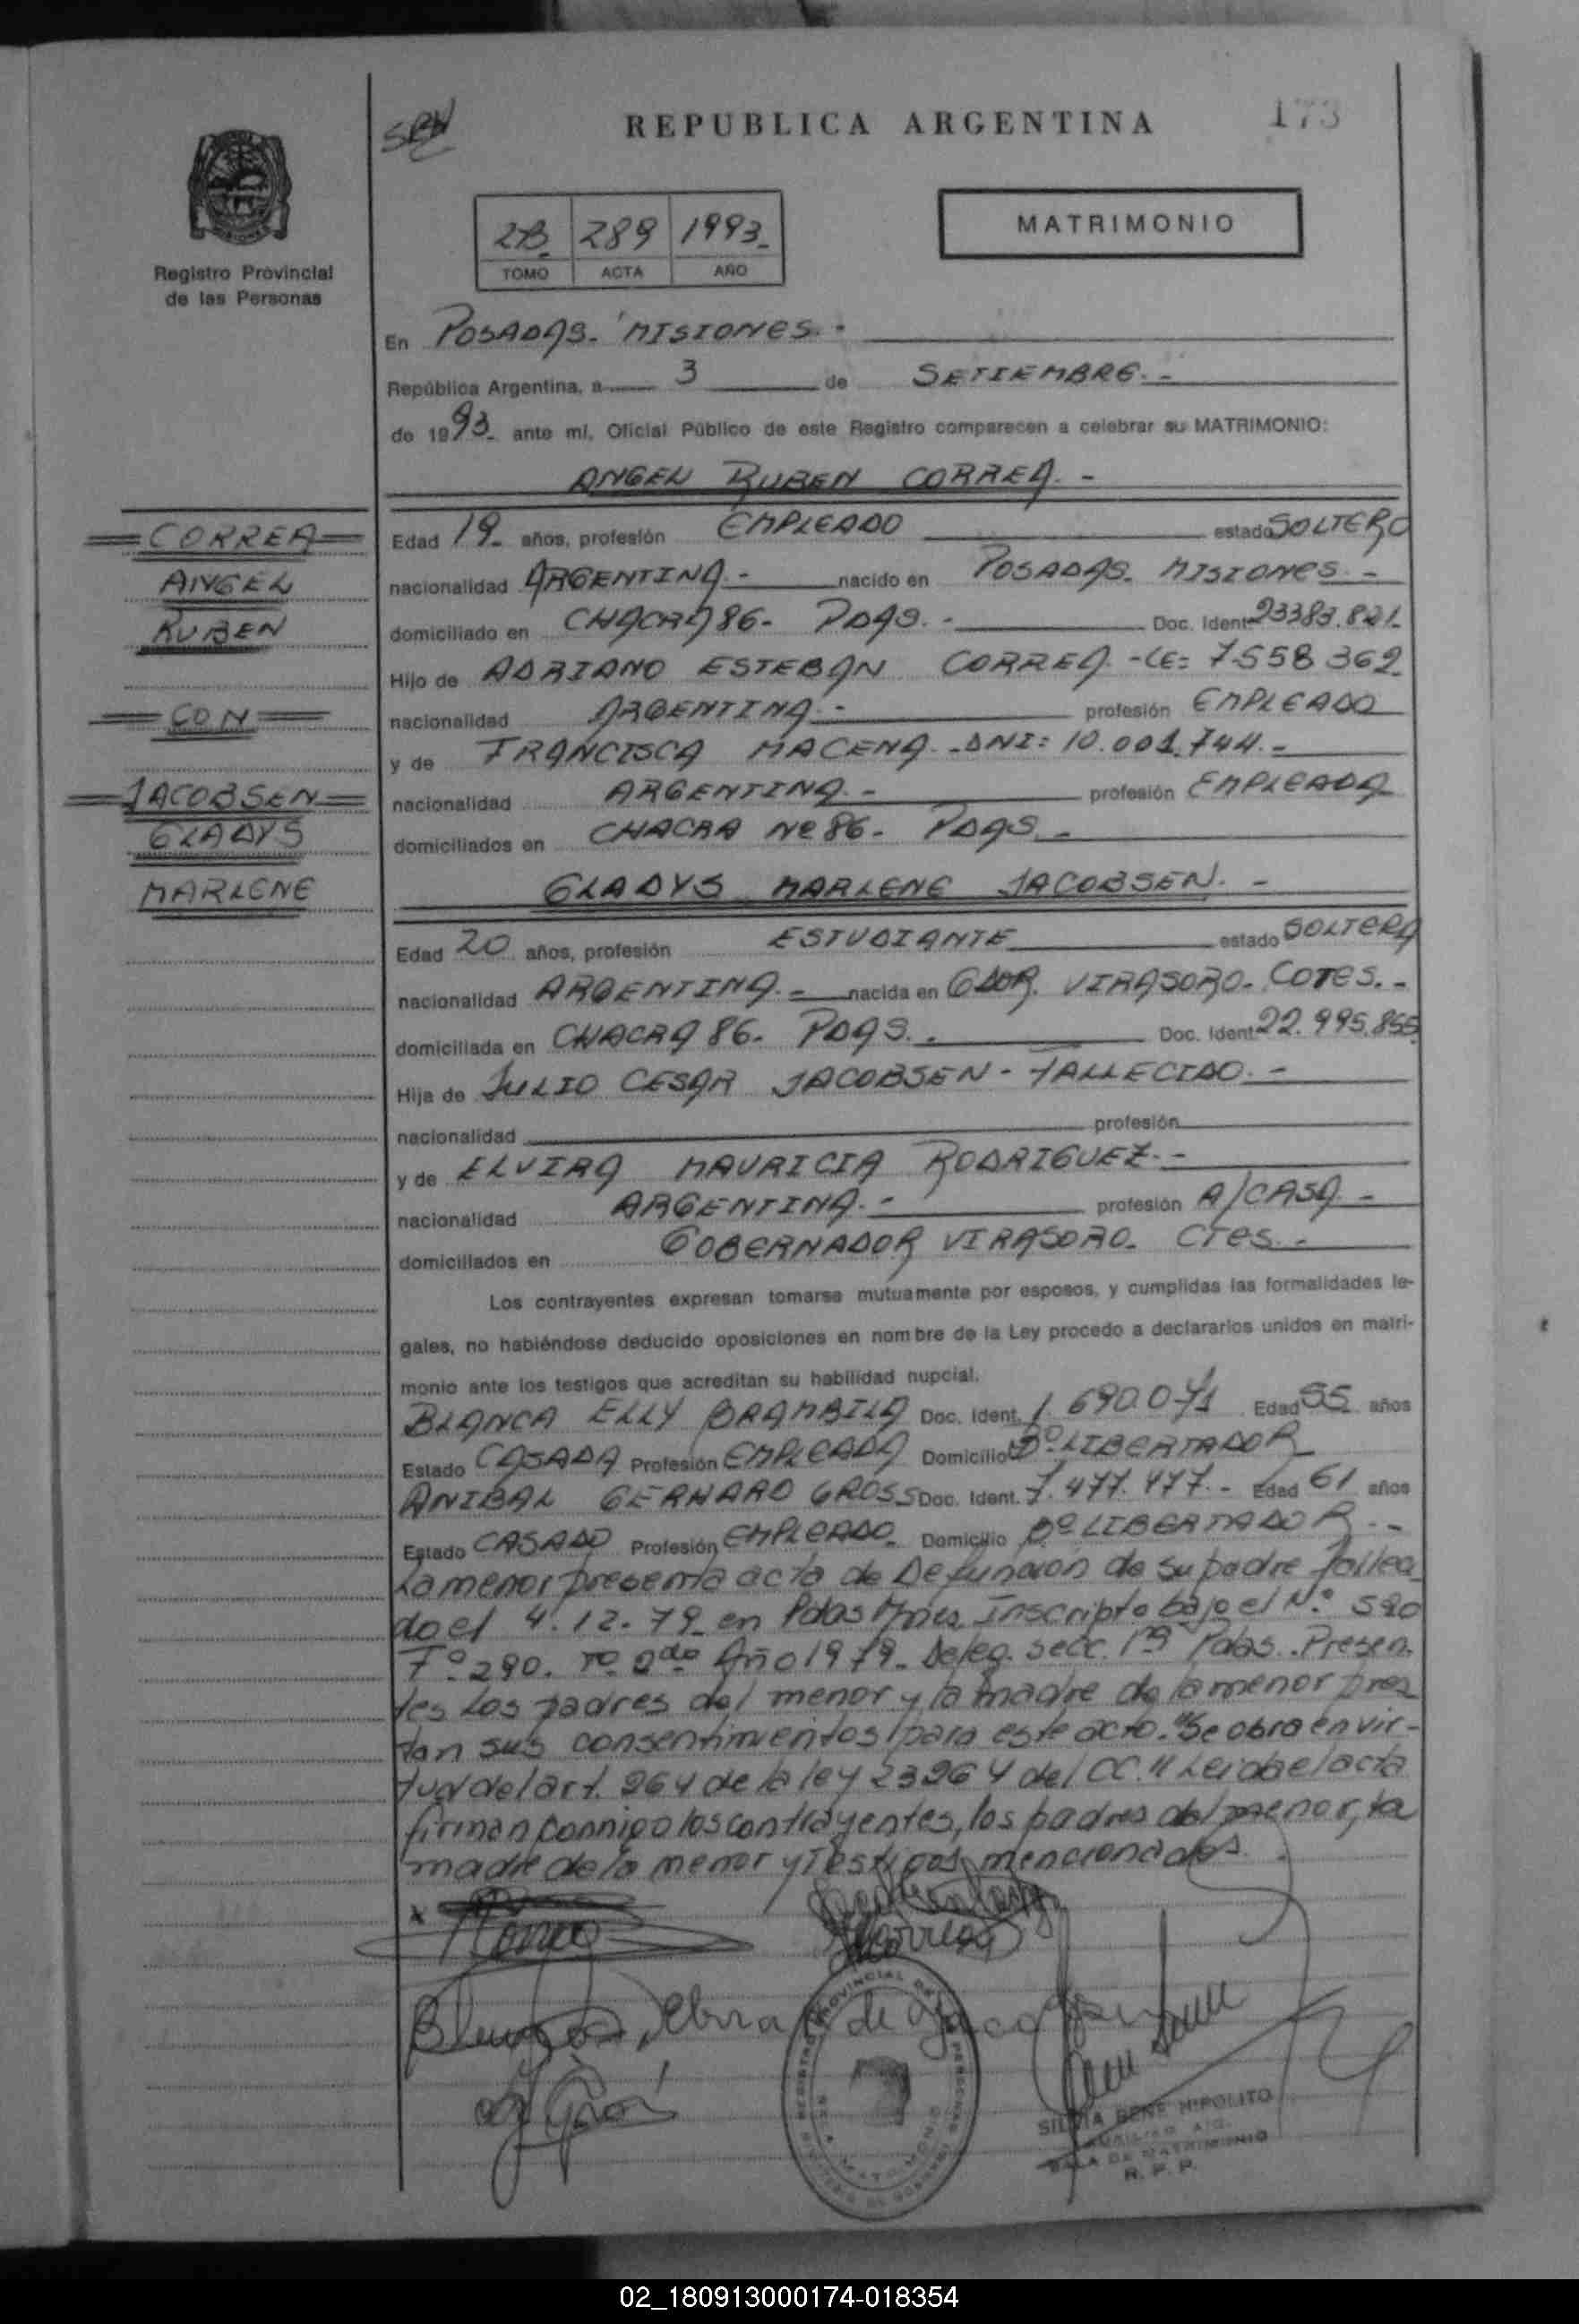 REPUBLICA ARGENTINA
173
2B 289 1993
TOMO ACTA AÑO
MATRIMONIO
Registro Provincial
de las Personas
En POSADAS. MISIONES.-
República Argentina, a 3 de SETIEMBRE.-
de 1993 ante mí, Oficial Público de este Registro comparecen a celebrar su MATRIMONIO:
ANGEL RUBEN CORREA.-
CORREA
ANGEL
RUBEN
CON
JACOBSEN
GLADYS
MARLENE
Edad 19 años, profesión EMPLEADO estado SOLTERO
nacionalidad ARGENTINA.- nacido en POSADAS. MISIONES.-
domiciliado en CHACRA 86- PDAS.- Doc. Ident. 23383.821.
Hijo de ADRIANO ESTEBAN CORREA.-LE: 7558362
nacionalidad ARGENTINA.- profesión EMPLEADO
y de FRANCISCA MACENA.-DNI: 10.001.744.-
nacionalidad ARGENTINA.- profesión EMPLEADA
domiciliados en CHACRA Nº 86- PDAS.-
GLADYS MARLENE JACOBSEN.-
Edad 20 años, profesión ESTUDIANTE estado SOLTERA
nacionalidad ARGENTINA.- nacida en GDOR. VIRASORO- COTES.-
domiciliada en CHACRA 86- PDAS.- Doc. Ident. 22.995.855
Hija de JULIO CESAR JACOBSEN - FALLECIDO.-
nacionalidad profesión
y de ELVIRA MAURICIA RODRIGUEZ.-
nacionalidad ARGENTINA.- profesión A/CASA.-
domiciliados en GOBERNADOR VIRASORO. CTES.-
Los contrayentes expresan tomarse mutuamente por esposos, y cumplidas las formalidades le-
gales, no habiéndose deducido oposiciones en nombre de la Ley procedo a declararlos unidos en matri-
monio ante los testigos que acreditan su habilidad nupcial.
BLANCA ELLY BRAMBILA Doc. Ident. 1.690.071 Edad 55 años
Estado CASADA Profesión EMPLEADA Domicilio Bº LIBERTADOR
ANIBAL GERHARD GROSS Doc. Ident. 7.477.477.- Edad 61 años
Estado CASADO Profesión EMPLEADO Domicilio Bº LIBERTADOR.-
La menor presenta acta de Defunción de su padre falleci
do el 4.12.79 en Pdas Mnes Inscripto bajo el Nº 590
Fº 290. Tº 2do Año 1979. Deleg. secc. 1ra Pdas. Presen.
tes Los padres del menor y la madre de la menor pres
tan sus consentimientos para este acto. "Se obra en vir-
tud del art. 264 de la ley 23264 del CC." Leida el acta
firman conmigo los contrayentes, los padres del menor, la
madre de la menor y Testigos mencionados.
REGISTRO PROVINCIAL DE LAS PERSONAS
SILVIA RENE HIPOLITO
SALA DE MATRIMONIO
R. P. P.
02_180913000174-018354